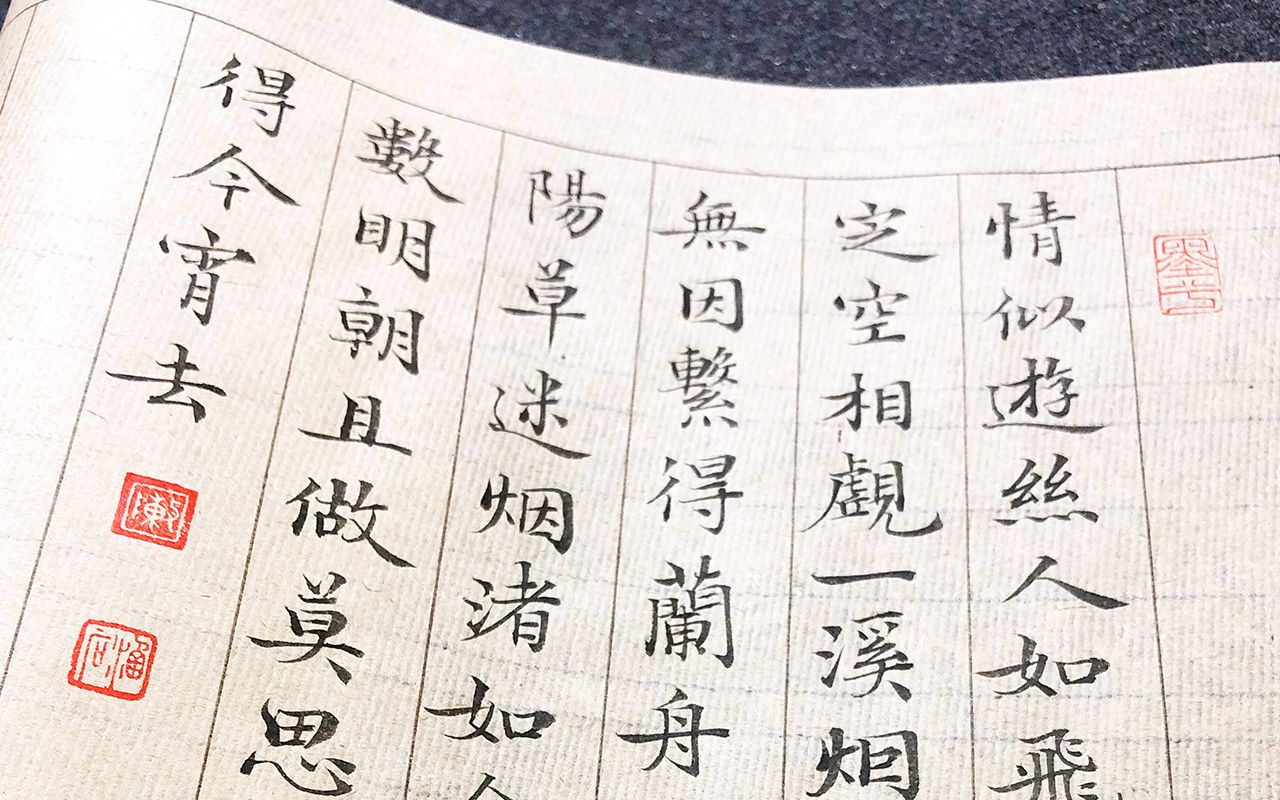 情似遊絲人如飛
定空相覷一溪烟
無因繫得蘭舟
陽草迷烟渚如
數明朝且做莫思
得今宵去